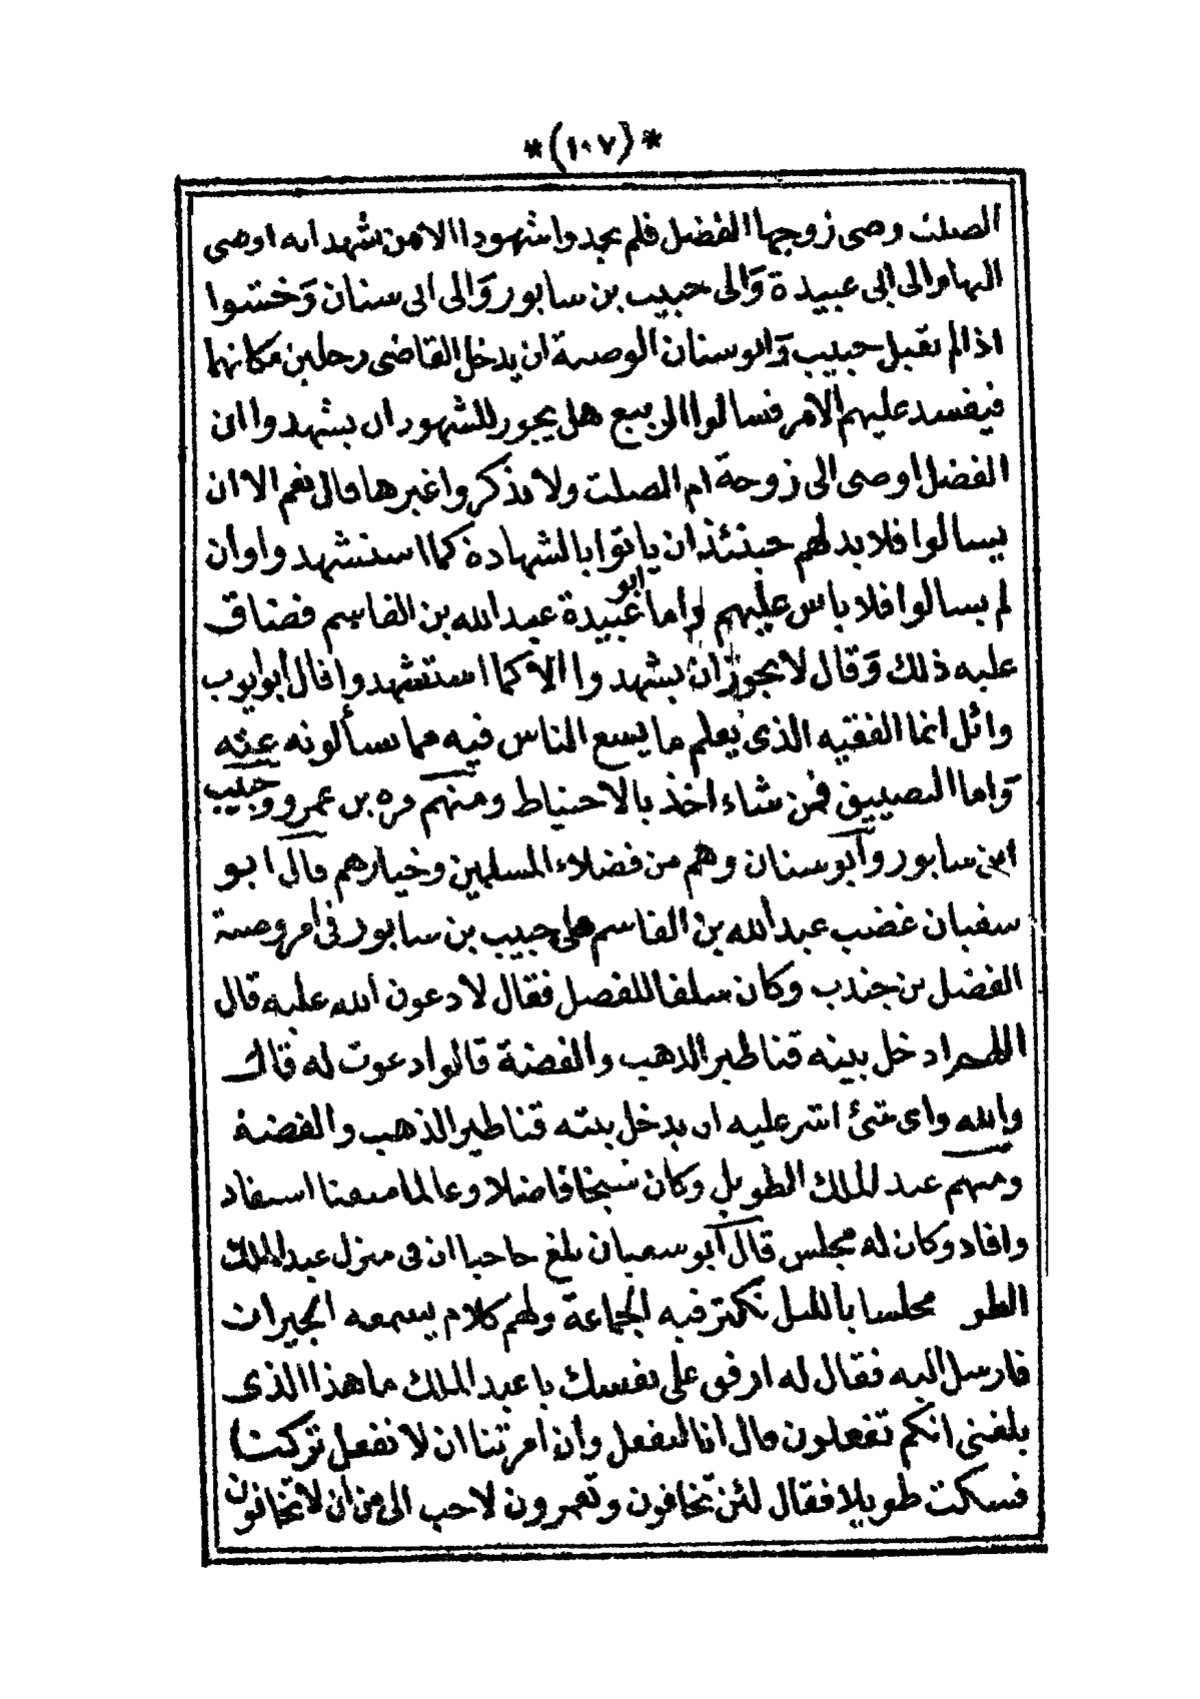 *(١٠٧)*
الصلت وصى زوجها الفضل فلم يجدوا شهودا الا من شهد انه اوصى
اليها والى ابى عبيدة وَالى حبيب بن سابور وَالى ابى سنان وَخشوا
اذا لم يقبل حبيب وَابو سنان الوصية ان يدخل القاضى رجلين مكانهما
فيفسد عليهم الامر فسالوا الربيع هل يجوز للشهود ان يشهدوا ان
الفضل اوصى الى زوجة ام الصلت ولا يذكروا غيرها قال نعم الا ان
يسالوا فلا بد لهم حينئذ ان ياتوا بالشهادة كما استشهدوا وان
لم يسالوا فلا باس عليهم واما ابو عبيدة عبد الله بن القاسم فضاق
عليه ذلك وَقال لا يجوز ان يشهدوا الا كما استشهدوا قال أبو ايوب
وائل انما الفقيه الذى يعلم ما يسع الناس فيه مما يسألونه عنه
وَاما التضييق فمن شاء اخذ بالاحتياط ومنهم مره بن عمرو وحبيب
ابن سابور وأبو سنان وهم من فضلاء المسلمين وخيارهم قال ابو
سفيان غضب عبد الله بن القاسم على حبيب بن سابور فى امر وصية
الفضل بن جندب وكان سلفا للفضل فقال لادعون الله عليه قال
اللهم ادخل بيته قناطير الذهب والفضة قالوا دعوت له قال
والله واى شئ اشر عليه ان يدخل بيته قناطير الذهب والفضة
ومنهم عبد الملك الطويل وكان شيخا فاضلا وعالما متقنا استفاد
وافاد وكان له مجلس قال أبو سفيان بلغ حاجبا ان فى منزل عبد الملك
الطو مجلسا بالليل تكثر فيه الجماعة ولهم كلام يسمعه الجيران
فارسل اليه فقال له ارفق على نفسك يا عبد الملك ما هذا الذى
بلغنى انكم تفعلون قال انا لنفعل وان امرتنا ان لا نفعل تركنا
فسكت طويلا فقال لئن تخافون وتعمرون لاحب الى من ان لا تخافون